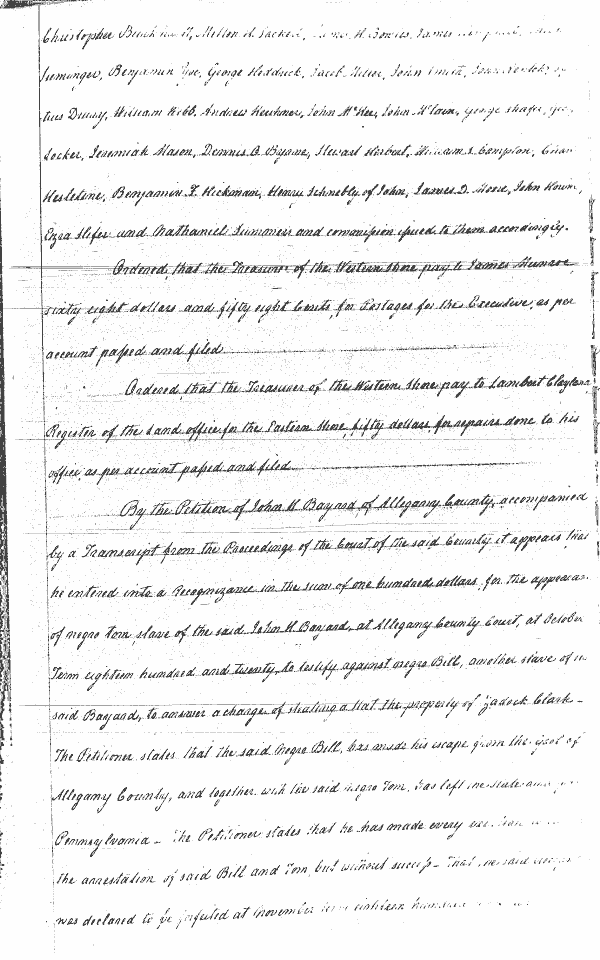 Christopher
Benjamin George Jacob John Smith,
Drury, William Webb, Andrew Kershner, John McKee, John McLain, George Shafer,
Locker, Jeremiah Mason, Dennis Byrne, Stewart Herbert, William Compton,
Hesletine, Benjamin F. Hickman, Henry Schnebly of John, James D. Moore, John
Ezra Slifer and Nathaniel Summers and commission issued to them accordingly.
Ordered, that the Treasurer of the Western Shore pay to James Munroe
sixty eight dollars and fifty eight Cents, for Postages for the Executive, as per
account passed and filed
Ordered that the Treasurer of the Western Shore pay to Lambert
Register of the Land office for the Eastern Shore, fifty dollars, for repairs done to his
office, as per account passed and filed
By the Petition of John H Bayard, of Allegany County, accompanied
by a Transcript from the Proceedings of the Court of the said County it appears that
he entered into a Recognizance in the sum of one hundred dollars, for the
of negro tom, slave of the said John H Bayard, at Allegany County Court, at October
Term eighteen hundred and twenty, to testify against negro Bill, another slave of
said Bayard, to answer a charge of stealing a hat the property of Zadock Clark –
The Petitioner states that the said Negro Bill, has made his escape from the gaol of
Allegany County, and together with the said negro Tom, has left the state and
Pennsylvania – The Petitioner states that he has made every
the arrestation of said Bill and Tom, but without success – That the said
was declared to be forfeited at November term eighteen hundred